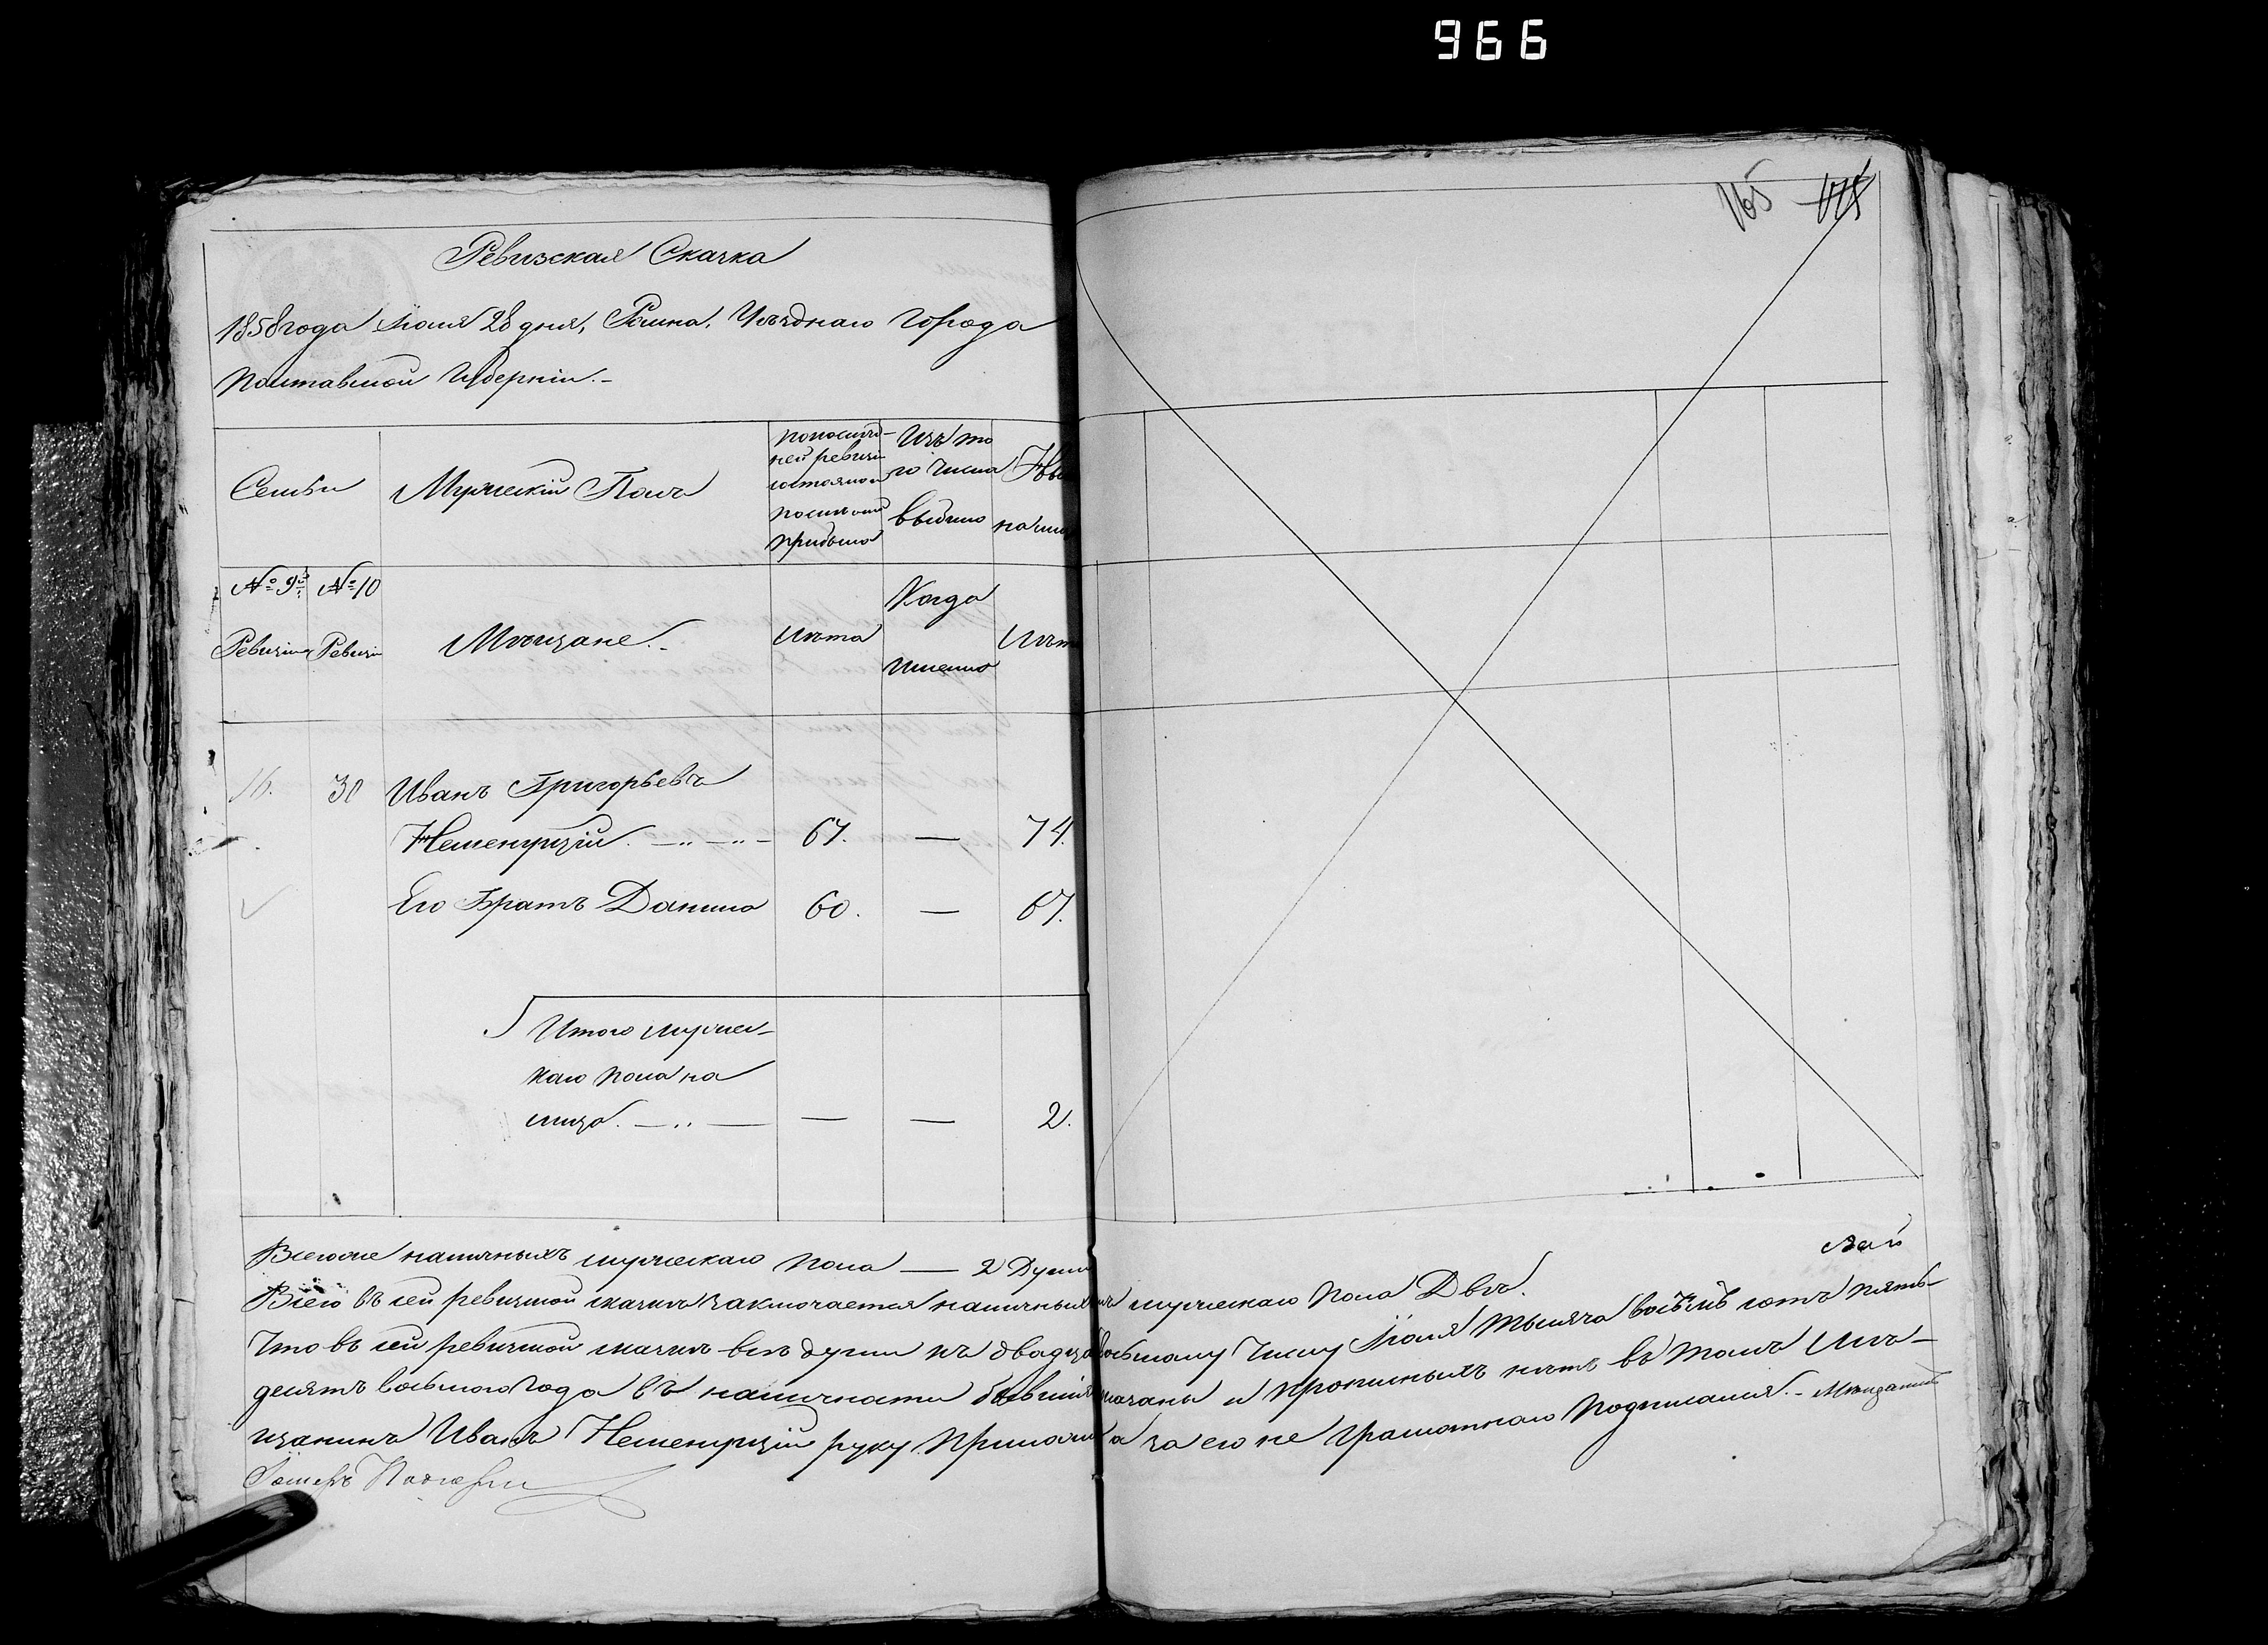 966
165
Ревизская Сказка
1858 года Маія 28 дня, Ромна, Уѣзднаго Города
Полтавской Губерніи.-
Семьи
Мужескій Полъ
По послѣд-
ней ревизіи
состояло и
после оной
прибыло
Изъ то
го числа
выбыло
Ны
на ли
№ 9й
Ревизіи
№ 10
Ревизіи
Мѣщане.-
Лѣта
Когда
именно
Лѣт
16. 30 Иванъ Григорьевъ
Неменущій. —„—„— 67. — 74.
Его Братъ Данило 60. — 67.
Итого мужес-
каго пола на
лицо. —„— — — 2.
Всегоже наличныхъ мужескаго пола — 2 Души
Всего въ сей ревизской сказкѣ заключается наличныхъ мужескаго пола Двѣ.
Что въ сей ревизской сказкѣ всѣ души къ двадца восьмому Числу Маія тысяча восемь сотъ пять-
десятъ восьмого года въ наличности бывшія показаны и прописныхъ нѣтъ въ томъ Мѣ-
щанинъ Иванъ Неменущій руку приложилъ а за его не грамотнаго подписался.- Мѣщанинъ